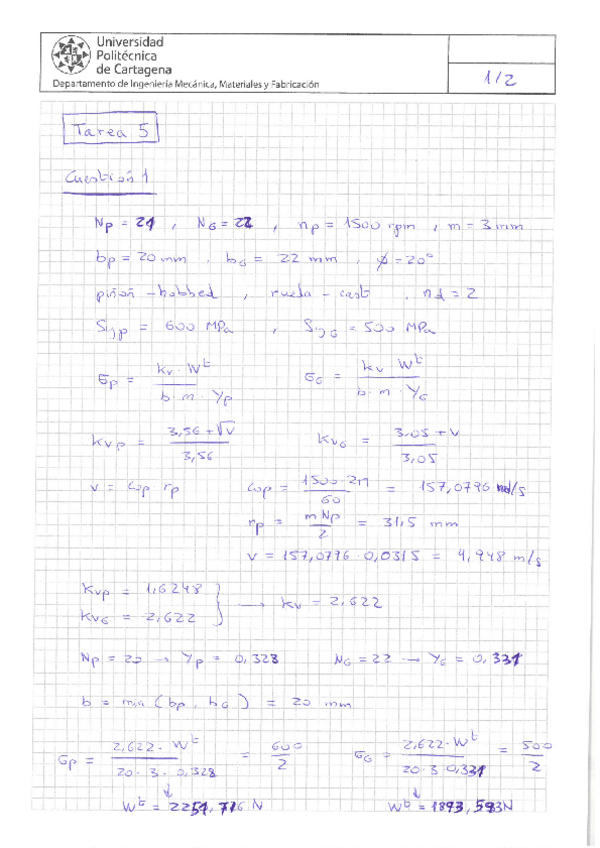 Universidad
Politécnica
de Cartagena
Departamento de Ingeniería Mecánica, Materiales y Fabricación
1/2
Tarea 5
Cuestión 1
Np = 21 , NG = 22 , np = 1500 rpm , m = 3 mm
bp = 20 mm , bG = 22 mm , φ = 20°
piñón - hobbed , rueda - cast , nd = 2
Sy,p = 600 MPa , Sy,G = 500 MPa
σp = kv · Wt / b · m · Yp σG = kv · Wt / b · m · YG
kvp = 3,56 + √v / 3,56 kvG = 3,05 + v / 3,05
v = ωp rp ωp = 1500 · 2π / 60 = 157,0796 rad/s
rp = m Np / 2 = 31,5 mm
v = 157,0796 · 0,0315 = 4,948 m/s
kvp = 1,6248
kvG = 2,622 } → kv = 2,622
Np = 20 → Yp = 0,328 NG = 22 → YG = 0,331
b = min (bp, bG) = 20 mm
σp = 2,622 · Wt / 20 · 3 · 0,328 = 600 / 2 σG = 2,622 · Wt / 20 · 3 · 0,331 = 500 / 2
Wt = 2251,716 N Wt = 1893,593 N